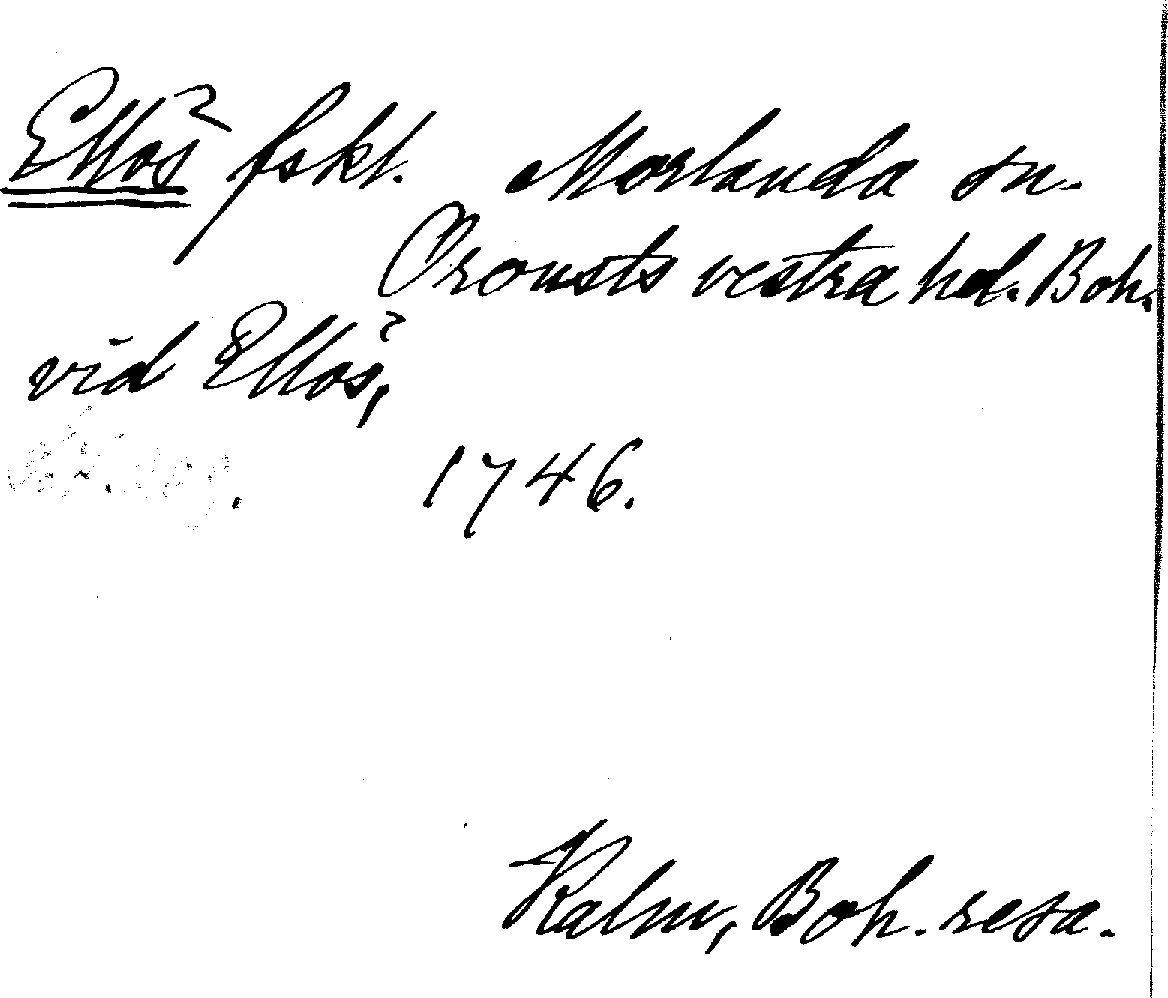 Ellös fskl. Morlanda sn.
Orousts vestra hd. Boh.
vid Ellös,
1746.
Kalm, Boh. resa.